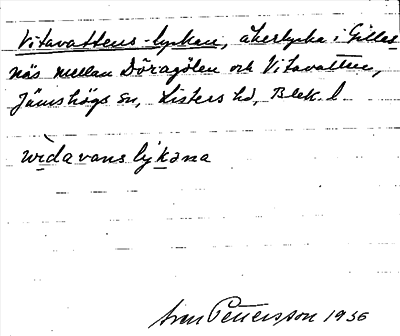 Vitavattens-lyckan, åkerlycka i Gillesnäs
näs mellan Döragölen och Vitavatten,
Jämshögs sn, Listers hd, Blek. l
widavanslyckəna
Sven Pettersson 1936